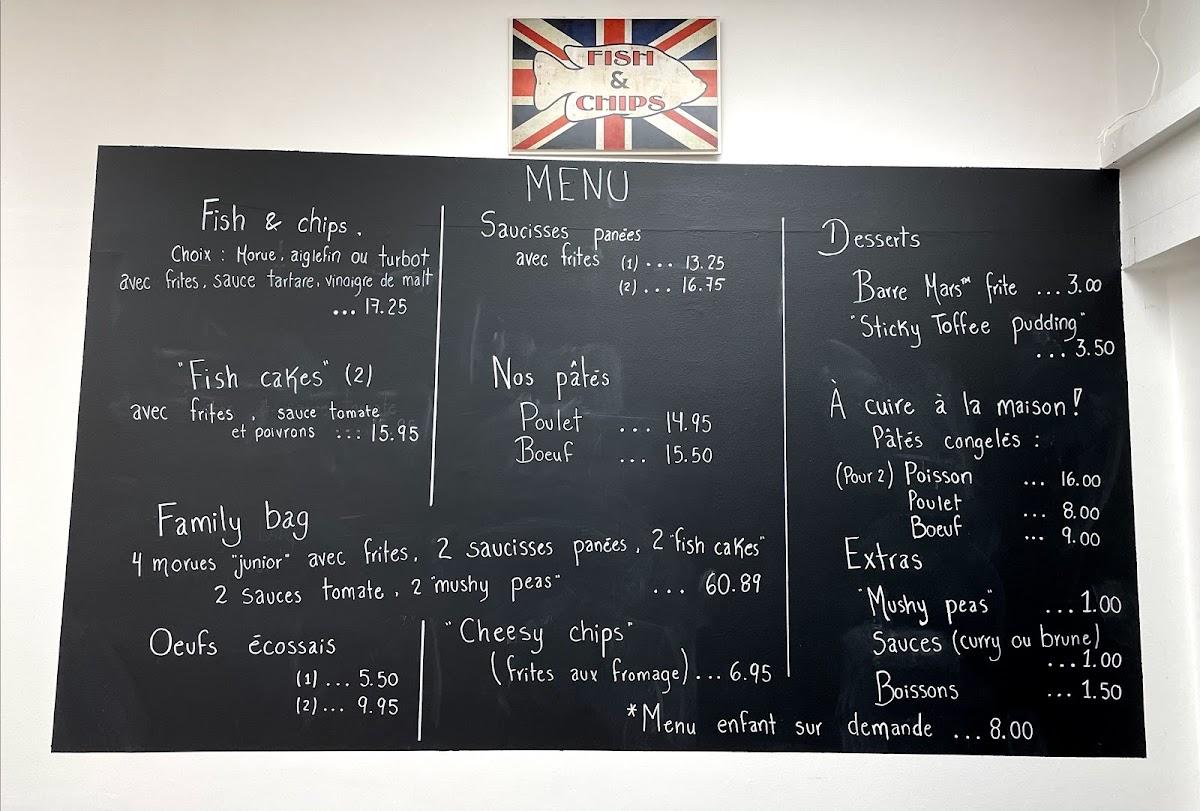 FISH
&
CHIPS
MENU
Fish & chips.
Choix : Morue, aiglefin ou turbot
avec frites, sauce tartare, vinaigre de malt
... 17.25
"Fish cakes" (2)
avec frites, sauce tomate
et poivrons ... 15.95
Saucisses panées
avec frites (1) ... 13.25
(2) ... 16.75
Nos pâtés
Poulet ... 14.95
Boeuf ... 15.50
Family bag
4 morues "junior" avec frites, 2 saucisses panées, 2 "fish cakes"
2 sauces tomate, 2 "mushy peas" ... 60.89
Oeufs écossais
(1) ... 5.50
(2) ... 9.95
"Cheesy chips"
(frites aux fromage) ... 6.95
Desserts
Barre Mars™ frite ... 3.00
"Sticky Toffee pudding"
... 3.50
À cuire à la maison!
Pâtés congelés :
(Pour 2) Poisson ... 16.00
Poulet ... 8.00
Boeuf ... 9.00
Extras
"Mushy peas" ... 1.00
Sauces (curry ou brune)
... 1.00
Boissons ... 1.50
*Menu enfant sur demande ... 8.00